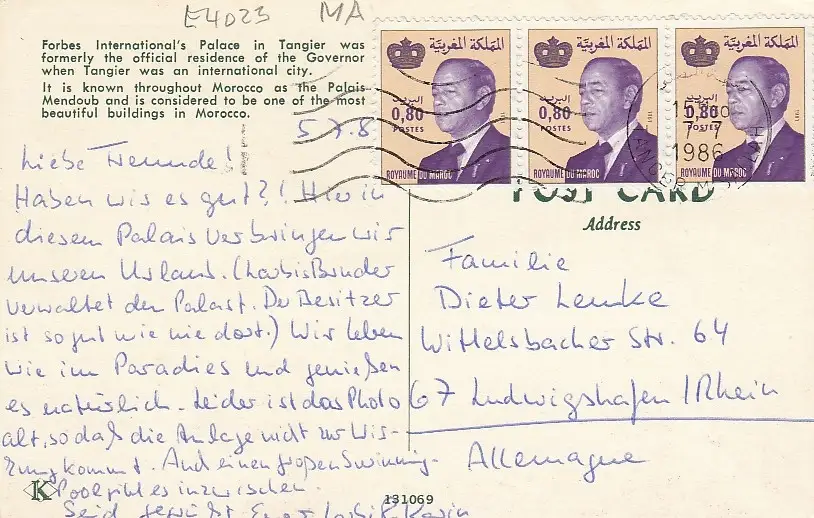 E4023 MA
Forbes International's Palace in Tangier was
formerly the official residence of the Governor
when Tangier was an international city.
It is known throughout Morocco as the Palais
Mendoub and is considered to be one of the most
beautiful buildings in Morocco.
المملكة المغربية
البريد
0,80
POSTES
1981
ROYAUME DU MAROC
المملكة المغربية
البريد
0,80
POSTES
1981
ROYAUME DU MAROC
المملكة المغربية
0,80
1981
ROYAUME DU MAROC
7-7
1986
TANGER
POST CARD
Address
5.7.8
Liebe Freunde!
Haben wir es gut?! Hier in
diesem Palais verbringen wir
unseren Urlaub. (Larbis Bruder
verwaltet den Palast. Der Besitzer
ist so gut wie nie dort.) Wir leben
wie im Paradies und genießen
es natürlich. Leider ist das Photo
alt, so daß die Anlage nicht zur Wir-
kung kommt. Auch einen großen Swimming-
Pool gibt es inzwischen.
Seid gegrüßt Karin
Familie
Dieter Lemke
Wittelsbacher Str. 64
67 Ludwigshafen / Rhein
Allemagne
K
131069